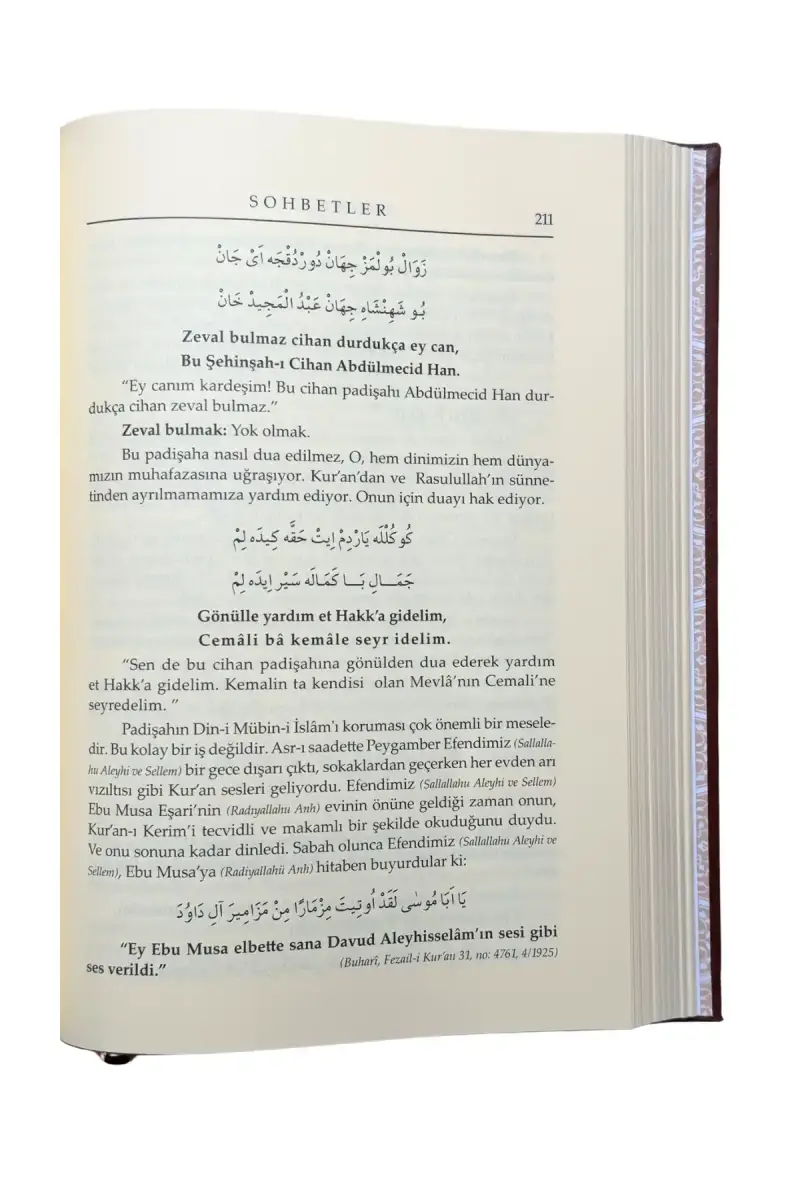 SOHBETLER
211
زَوَالْ بُولْمَزْ جِهَانْ دُورْدُقْجَه اَىْ جَانْ
بُو شَهِنْشَاهِ جِهَانْ عَبْدُ الْمَجِيدْ خَانْ
Zeval bulmaz cihan durdukça ey can,
Bu Şehinşah-ı Cihan Abdülmecid Han.
“Ey canım kardeşim! Bu cihan padişahı Abdülmecid Han dur-
dukça cihan zeval bulmaz.”
Zeval bulmak: Yok olmak.
Bu padişaha nasıl dua edilmez, O, hem dinimizin hem dünya-
mızın muhafazasına uğraşıyor. Kur’an’dan ve Rasulullah’ın sünne-
tinden ayrılmamamıza yardım ediyor. Onun için duayı hak ediyor.
كُوكُلْلَه يَارْدِمْ اِيتْ حَقَّه كِيدَه لِمْ
جَمَـالِ بَـا كَمَالَه سَيْر اِيدَه لِمْ
Gönülle yardım et Hakk’a gidelim,
Cemâli bâ kemâle seyr idelim.
“Sen de bu cihan padişahına gönülden dua ederek yardım
et Hakk’a gidelim. Kemalin ta kendisi olan Mevlâ’nın Cemali’ne
seyredelim. ”
Padişahın Din-i Mübin-i İslâm'ı koruması çok önemli bir mesele-
dir. Bu kolay bir iş değildir. Asr-ı saadette Peygamber Efendimiz (Sallalla-
hu Aleyhi ve Sellem) bir gece dışarı çıktı, sokaklardan geçerken her evden arı
vızıltısı gibi Kur’an sesleri geliyordu. Efendimiz (Sallallahu Aleyhi ve Sellem)
Ebu Musa Eşari’nin (Radıyallahu Anh) evinin önüne geldiği zaman onun,
Kur’an-ı Kerim’i tecvidli ve makamlı bir şekilde okuduğunu duydu.
Ve onu sonuna kadar dinledi. Sabah olunca Efendimiz (Sallallahu Aleyhi ve
Sellem), Ebu Musa’ya (Radiyallahü Anh) hitaben buyurdular ki:
يَا اَبَا مُوسٰى لَقَدْ اُوتِيتَ مِزْمَارًا مِنْ مَزَامِيرَ آلِ دَاوُدَ
“Ey Ebu Musa elbette sana Davud Aleyhisselâm’ın sesi gibi
ses verildi.”
(Buharî, Fezail-i Kur’an 31, no: 4761, 4/1925)